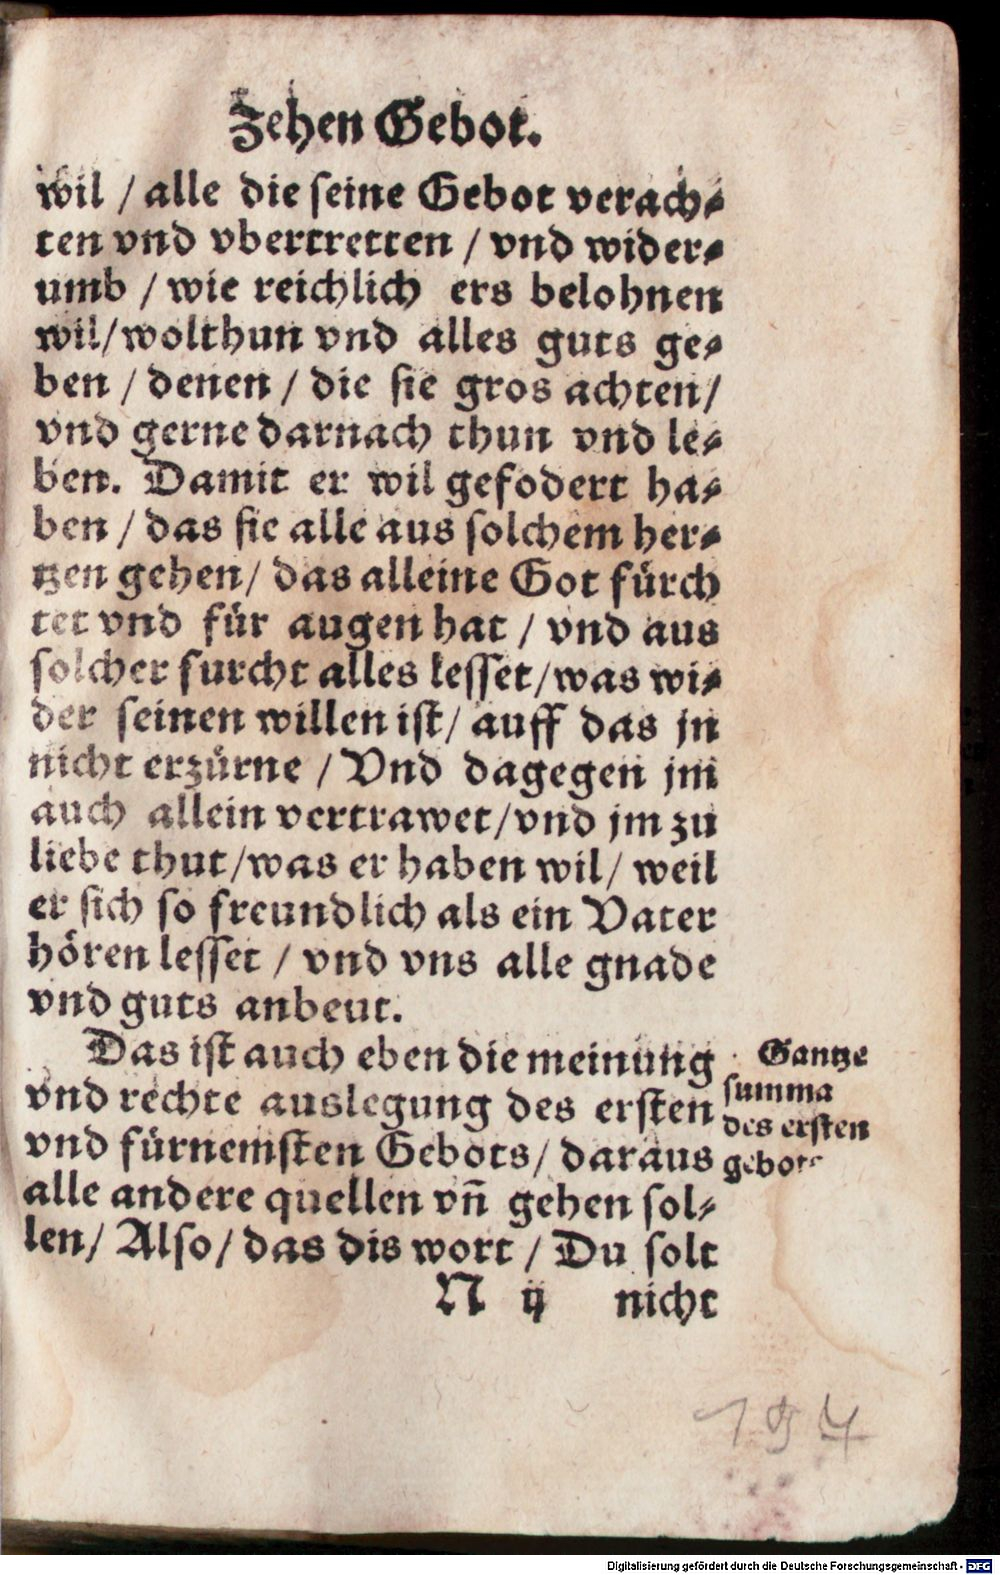 Zehen Gebot.
wil / alle die seine Gebot verach⸗
ten vnd vbertretten / vnd wider⸗
umb / wie reichlich ers belohnen
wil/wolthun vnd alles guts ge⸗
ben / denen / die sie gros achten/
vnd gerne darnach thun vnd le⸗
ben. Damit er wil gefodert ha⸗
ben / das sie alle aus solchem her⸗
tzen gehen/ das alleine Got fürch
tet vnd für augen hat / vnd aus
solcher furcht alles lesset/was wi⸗
der seinen willen ist/ auff das jn
nicht erzürne / Vnd dagegen jm
auch allein vertrawet/vnd jm zu
liebe thut/was er haben wil/ weil
er sich so freundlich als ein Vater
hören lesset / vnd vns alle gnade
vnd guts anbeut.
Das ist auch eben die meinung
vnd rechte auslegung des ersten
vnd fürnemsten Gebots/ daraus
alle andere quellen vñ gehen sol⸗
len/ Also/ das dis wort / Du solt
N ij nicht
Gantze
summa
des ersten
gebots
194
Digitalisierung gefördert durch die Deutsche Forschungsgemeinschaft - DFG